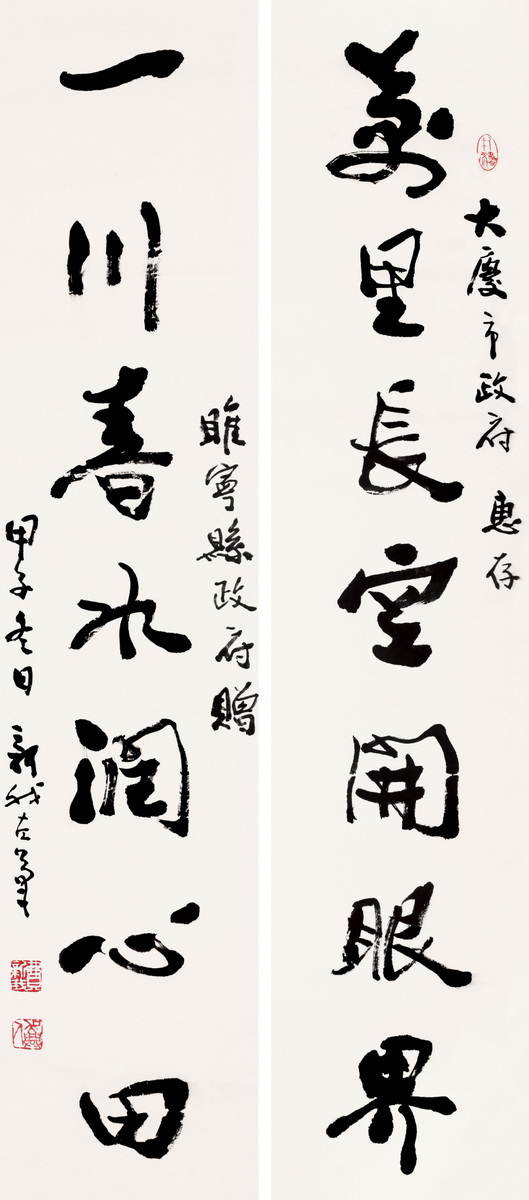 大慶市政府 惠存
萬里長空開眼界
睢寧縣政府贈
一川春水潤心田
甲子冬日 新我左筆